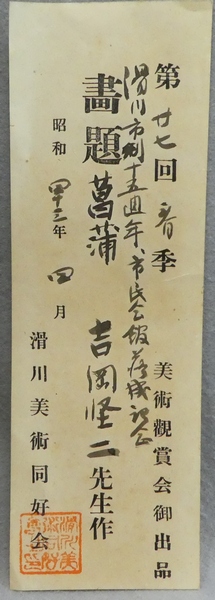 第廿七回春季美術觀賞会御出品
滑川市制十五周年、市民会館落成記念
畵題菖蒲 吉岡堅二先生作
昭和四十三年四月
滑川美術同好会